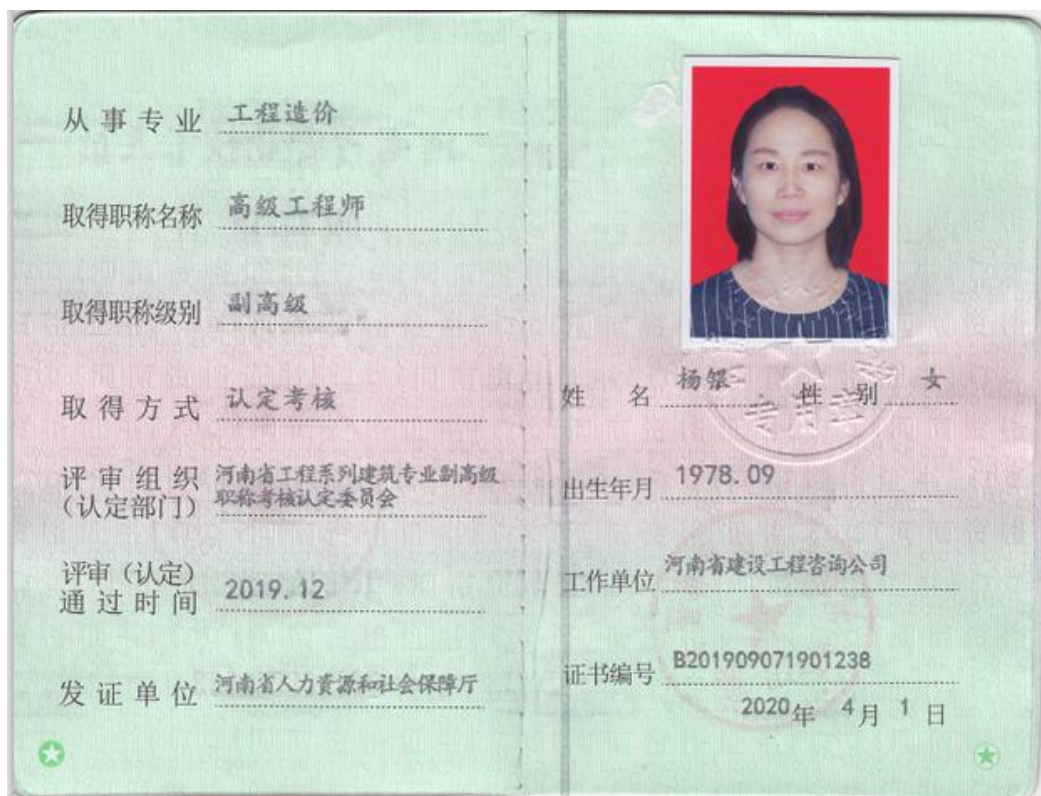 从事专业 工程造价
取得职称名称 高级工程师
取得职称级别 副高级
取得方式 认定考核
评审组织 河南省工程系列建筑专业副高级
(认定部门) 职称考核认定委员会
评审(认定)
通过时间 2019.12
发证单位 河南省人力资源和社会保障厅
姓名 杨银 性别 女
专用章
出生年月 1978.09
工作单位 河南省建设工程咨询公司
证书编号 B201909071901238
2020年 4月 1日